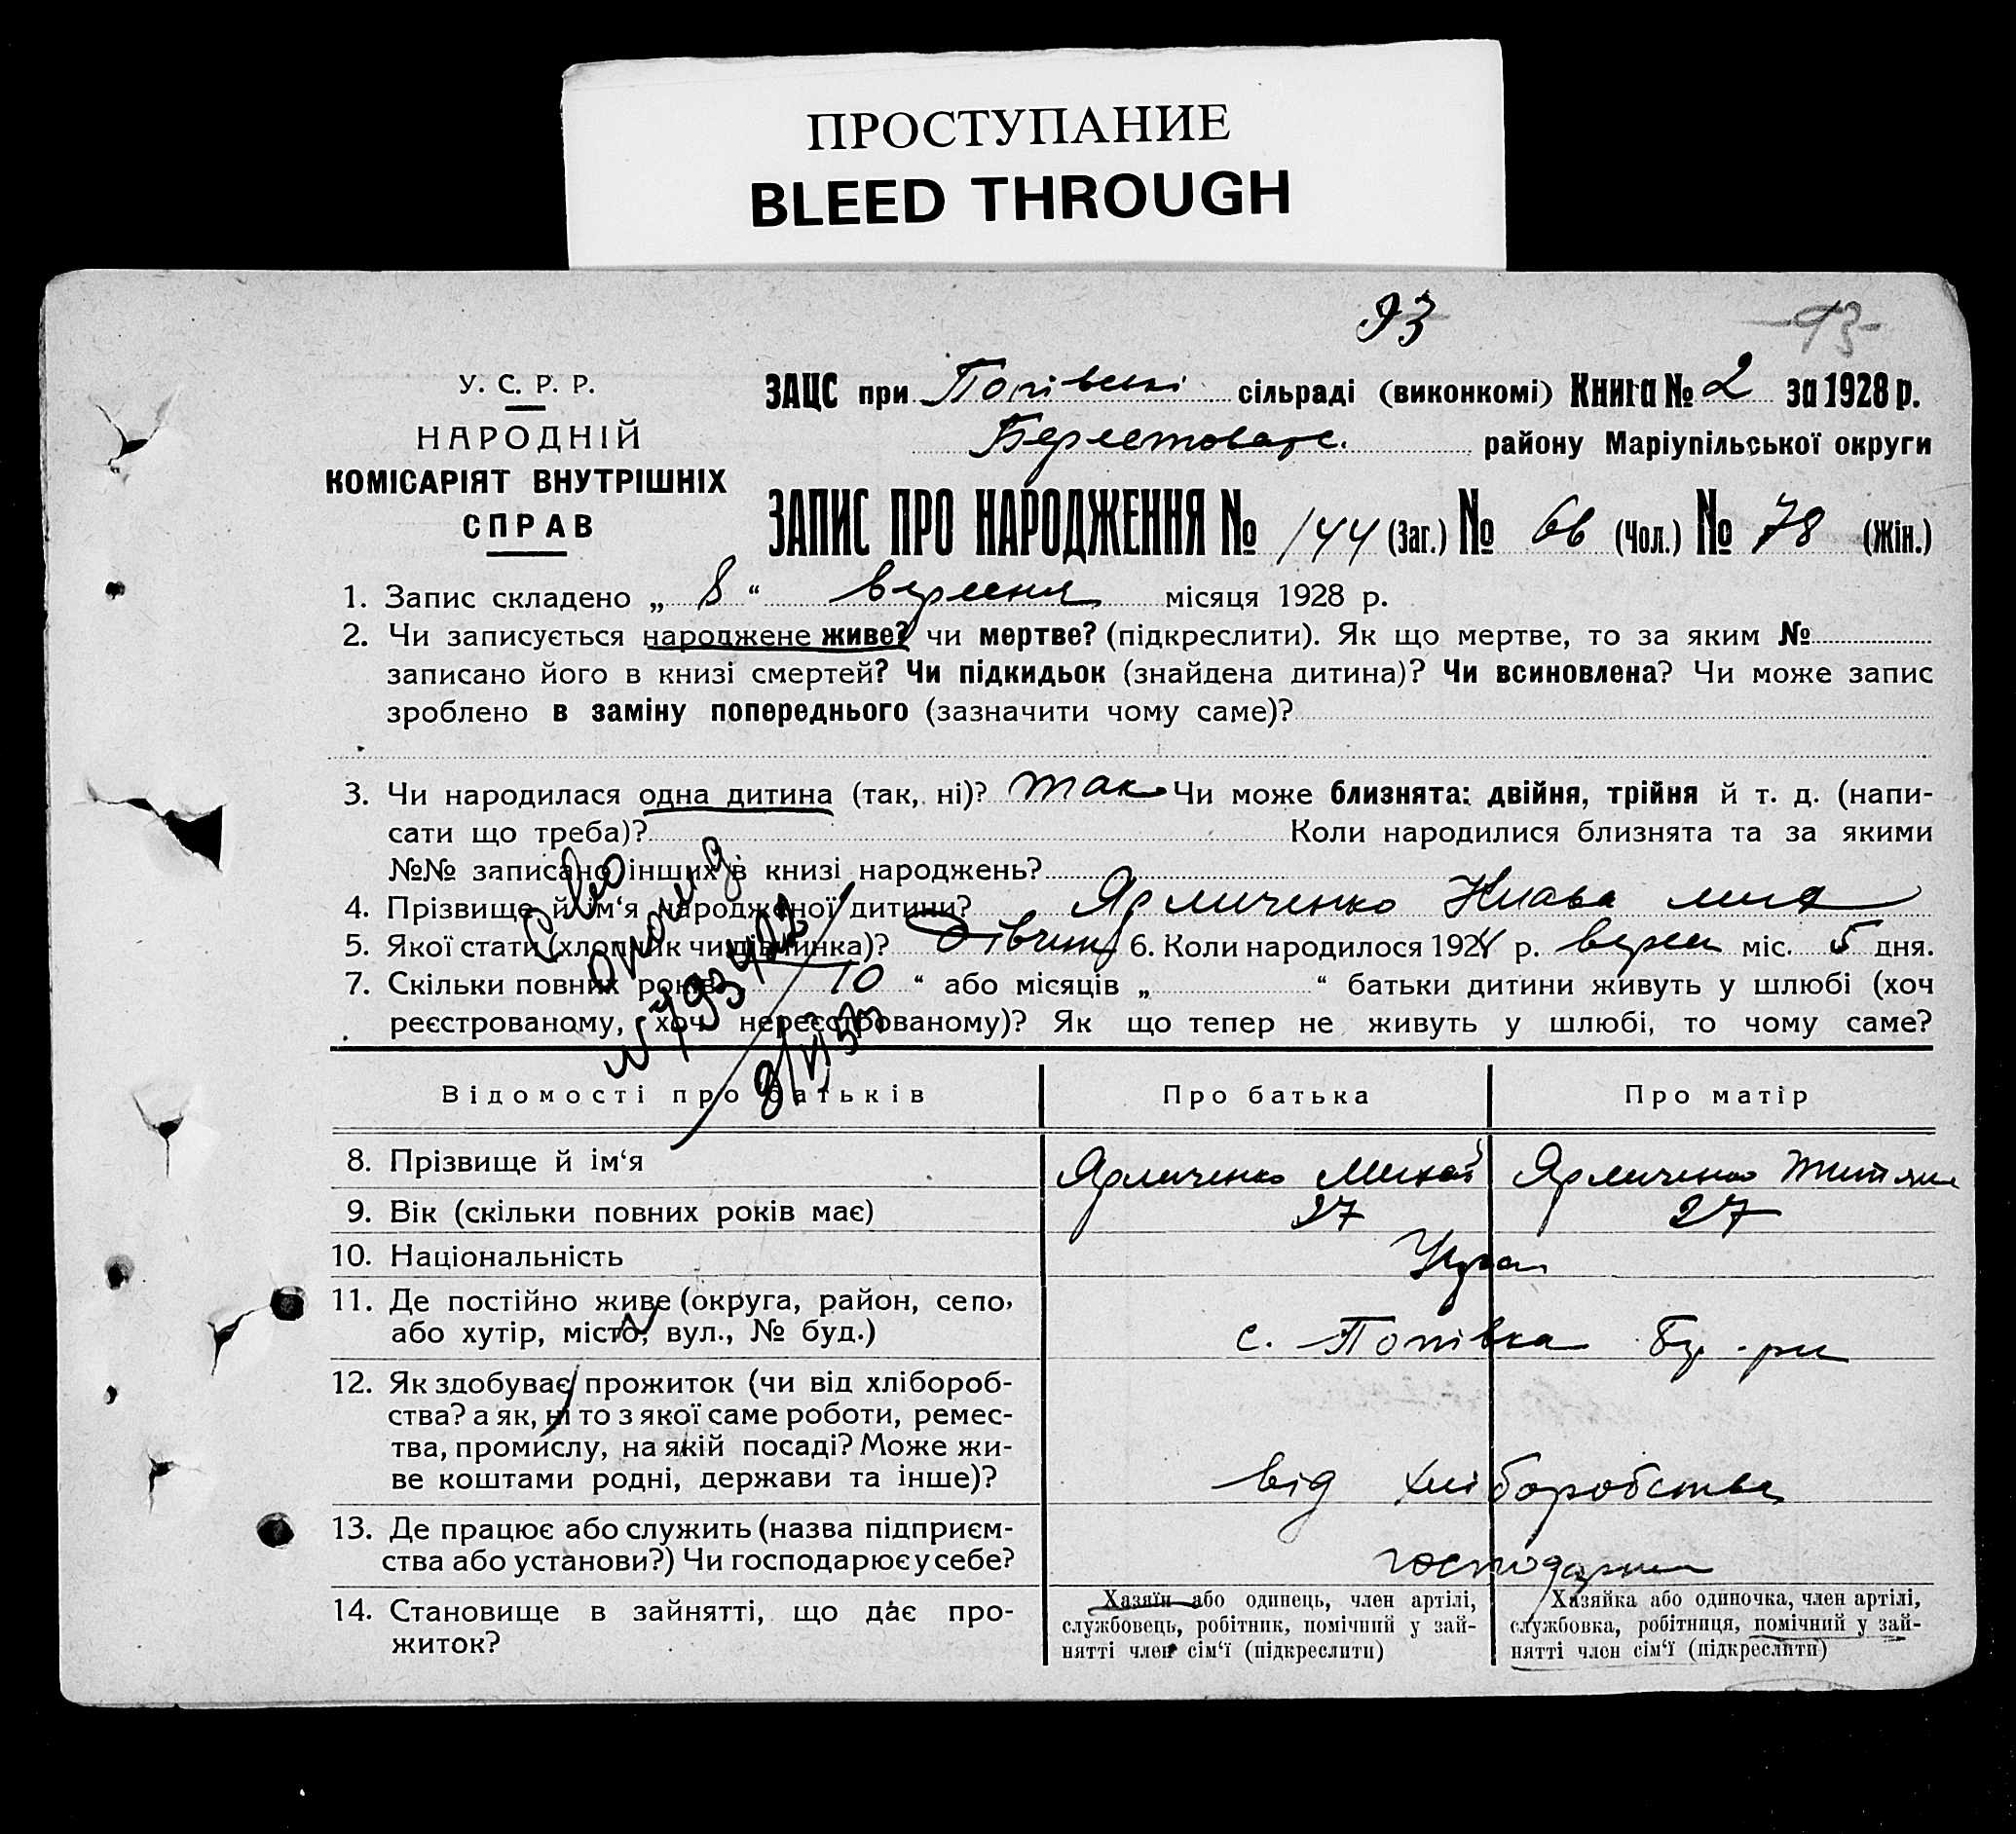 ПРОСТУПАНИЕ
BLEED THROUGH
93
93
У. С. Р. Р.
НАРОДНІЙ
КОМІСАРІЯТ ВНУТРІШНІХ
СПРАВ
ЗАЦС при Попівські сільраді (виконкомі) Книга № 2 за 1928 р.
району Маріупільської округи
ЗАПИС ПРО НАРОДЖЕННЯ № 144 (Заг.) № 66 (Чол.) № 78 (Жін.)
1. Запис складено „ 8 “ вересня місяця 1928 р.
2. Чи записується народжене живе? чи мертве? (підкреслити). Як що мертве, то за яким №
записано його в книзі смертей? Чи підкидьок (знайдена дитина)? Чи всиновлена? Чи може запис
зроблено в заміну попереднього (зазначити чому саме)?
3. Чи народилася одна дитина (так, ні)? так Чи може близнята: двійня, трійня й т. д. (напи-
сати що треба)? Коли народилися близнята та за якими
№№ записано інших в книзі народжень?
4. Прізвище й ім‘я народженої дитини? Ярмиченко
5. Якої стати (хлопчик чи дівчинка)? Дівчин 6. Коли народилося 1928 р. верес міс. 5 дня.
7. Скільки повних років „ 10 “ або місяців „ “ батьки дитини живуть у шлюбі (хоч
реєстрованому, хоч нереєстрованому)? Як що тепер не живуть у шлюбі, то чому саме?
Відомості про батьків
Про батька
Про матір
8. Прізвище й ім‘я
Ярмиченко
Ярмиченко
9. Вік (скільки повних років має)
27
27
10. Національність
Укра
11. Де постійно живе (округа, район, село,
або хутір, місто, вул., № буд.)
с. Попівка
12. Як здобуває прожиток (чи від хлібороб-
ства? а як, ні то з якої саме роботи, ремес-
тва, промислу, на якій посаді? Може жи-
ве коштами родні, держави та інше)?
від хліборобства
13. Де працює або служить (назва підприєм-
ства або установи?) Чи господарює у себе?
14. Становище в зайнятті, що дає про-
житок?
Хазяїн або одинець, член артілі,
службовець, робітник, помічний у зай-
нятті член сім‘ї (підкреслити)
Хазяйка або одиночка, член артілі,
службовка, робітниця, помічний у зай-
нятті член сім‘ї (підкреслити)